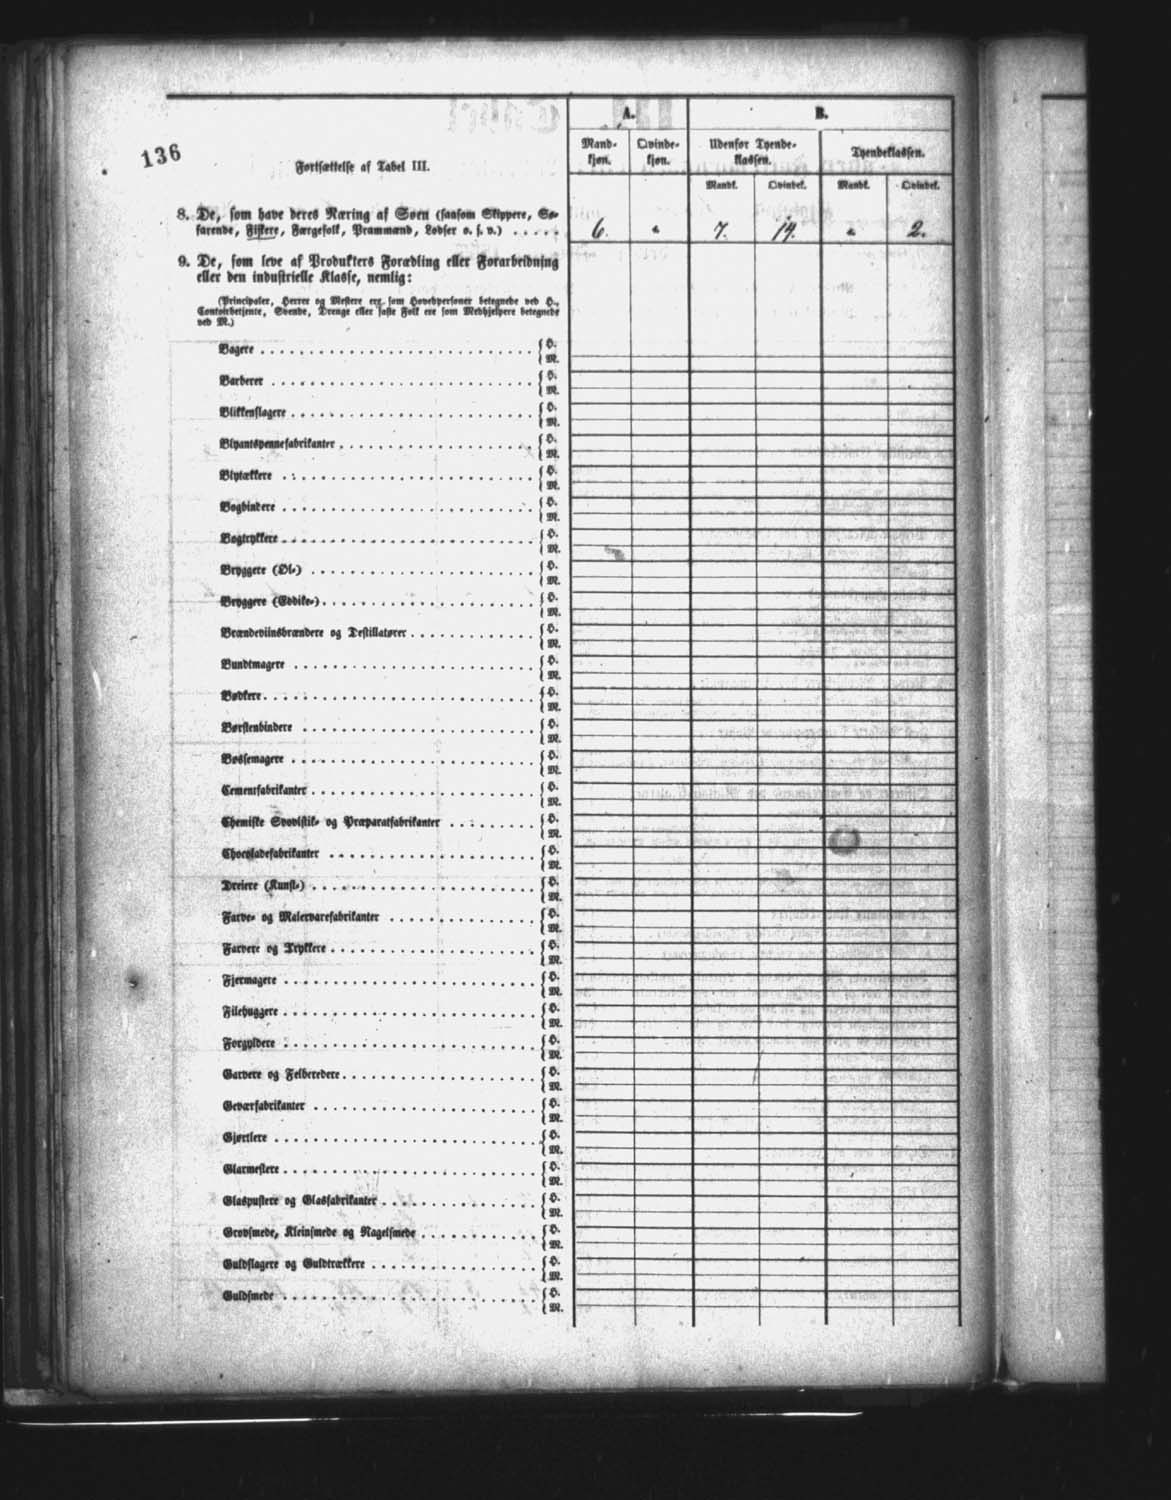 136
Fortsættelse af Tabel III.
A.
B.
Mand-
kjøn.
Qvinde-
kjøn.
Udenfor Tyende-
klassen.
Tyendeklassen.
Mandk.
Qvindek.
Mandk.
Qvindek.
8. De, som have deres Næring af Søen (saasom Skippere, Sø-
farende, Fiskere, Færgefolk, Prammænd, Lodser o. s. v.) . . . . .
6. " 7. 14. " 2.
9. De, som leve af Produkters Forædling eller Forarbeidning
eller den industrielle Klasse, nemlig:
(Principaler, Herrer og Mestere ere som Hovedpersoner betegnede ved H.,
Contoirbetjente, Svende, Drenge eller faste Folk ere som Medhjelpere betegnede
ved M.)
Bagere { H.
{ M.
Barberer { H.
{ M.
Blikkenslagere { H.
{ M.
Blyantspennefabrikanter { H.
{ M.
Blytækkere { H.
{ M.
Bogbindere { H.
{ M.
Bogtrykkere { H.
{ M.
Bryggere (Øl-) { H.
{ M.
Bryggere (Eddike-) { H.
{ M.
Brændeviinsbrændere og Destillatører { H.
{ M.
Bundtmagere { H.
{ M.
Bødkere { H.
{ M.
Børstenbindere { H.
{ M.
Bøssemagere { H.
{ M.
Cementfabrikanter { H.
{ M.
Chemiske Svovlstik- og Præparatfabrikanter { H.
{ M.
Chocoladefabrikanter { H.
{ M.
Dreiere (Kunst-) { H.
{ M.
Farve- og Malervarefabrikanter { H.
{ M.
Farvere og Trykkere { H.
{ M.
Fjermagere { H.
{ M.
Filehuggere { H.
{ M.
Forgyldere { H.
{ M.
Garvere og Felberedere { H.
{ M.
Geværfabrikanter { H.
{ M.
Gjørtlere { H.
{ M.
Glarmestere { H.
{ M.
Glaspustere og Glasfabrikanter { H.
{ M.
Grovsmede, Kleinsmede og Nagelsmede { H.
{ M.
Guldslagere og Guldtrækkere { H.
{ M.
Guldsmede { H.
{ M.